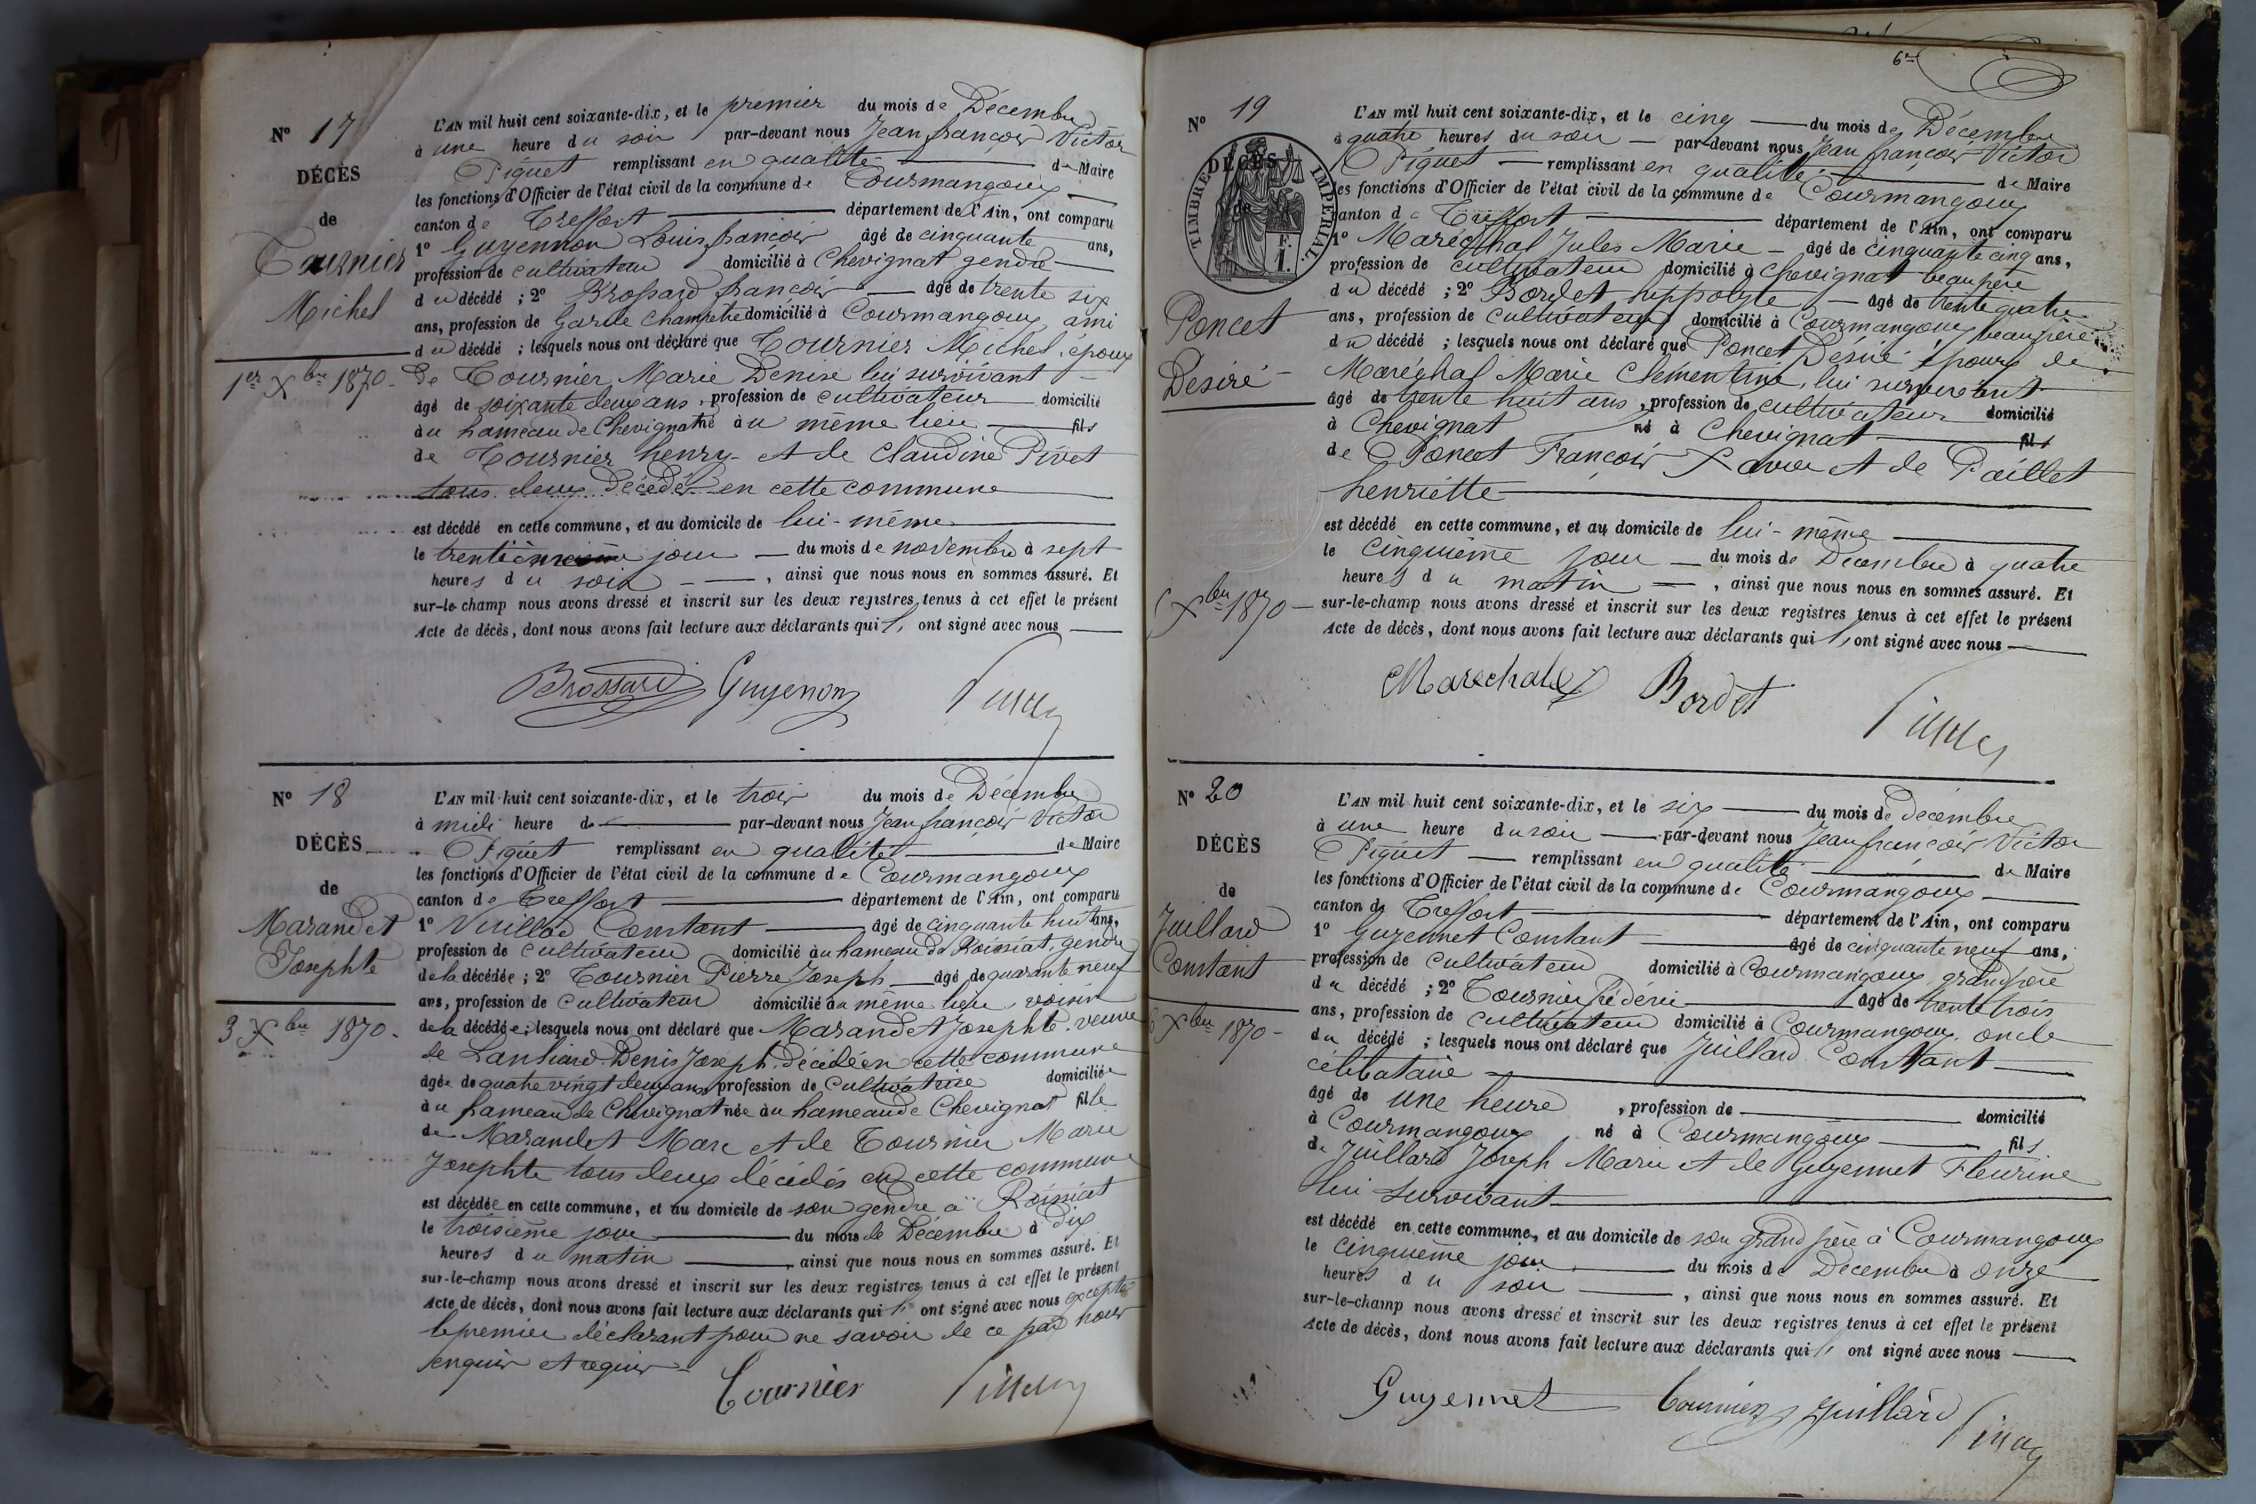 N° 17
DÉCÈS
de
Tournier
Michel
1er Xbre 1870 -
L'AN mil huit cent soixante-dix, et le premier du mois de Décembre
à une heure du soir par-devant nous Jean françois Victor
Piquet remplissant en qualité de Maire
les fonctions d'Officier de l'état civil de la commune de Courmangoux
canton de Treffort département de l'Ain, ont comparu
1° Guyennon Louis françois âgé de cinquante ans,
profession de cultivateur domicilié à Chevignat gendre
du décédé ; 2° Brossard françois âgé de trente six
ans, profession de Garde Champêtre domicilié à Courmangoux ami
du décédé ; lesquels nous ont déclaré que Tournier Michel, époux
de Tournier Marie Denise lui survivant
âgé de soixante deux ans, profession de cultivateur domicilié
au hameau de Chevignat né au même lieu fils
de Tournier henry et de Claudine Pivet
tous deux Décédés en cette commune
est décédé en cette commune, et au domicile de lui-même
le jour du mois de novembre à sept
heures du soir, ainsi que nous nous en sommes assuré. Et
sur-le-champ nous avons dressé et inscrit sur les deux registres tenus à cet effet le présent
Acte de décès, dont nous avons fait lecture aux déclarants qui ont signé avec nous
Brossard Guyenon
N° 18
DÉCÈS
de
Marandet
Josephte
3 Xbre 1870 -
L'AN mil huit cent soixante-dix, et le trois du mois de Décembre
à midi heure d par-devant nous Jean françois Victor
Piquet remplissant en qualité de Maire
les fonctions d'Officier de l'état civil de la commune de Courmangoux
canton de Treffort département de l'Ain, ont comparu
1° Vuillod Constant âgé de cinquante huit ans,
profession de cultivateur domicilié au hameau de Roissiat, gendre
de la décédée ; 2° Tournier Pierre Joseph âgé de quarante neuf
ans, profession de cultivateur domicilié au même lieu, voisin
de la décédée ; lesquels nous ont déclaré que Marandet Josephte, veuve
de Denis Joseph, Décédé en cette commune
âgée de quatre vingt deux ans, profession de Cultivatrice domiciliée
au hameau de Chevignat née au hameau de Chevignat fille
de Marandet Marc et de Tournier Marie
Josephte tous deux décédés en cette commune
est décédée en cette commune, et au domicile de son gendre à Roissiat
le troisième jour du mois de Décembre à dix
heures du matin, ainsi que nous nous en sommes assuré. Et
sur-le-champ nous avons dressé et inscrit sur les deux registres tenus à cet effet le présent
Acte de décès, dont nous avons fait lecture aux déclarants qui ont signé avec nous excepté
le premier déclarant pour ne savoir de ce par nous
enquis et requis
Tournier
6me
N° 19
DÉCÈS
de
TIMBRE IMPERIAL.
F.
1.
Poncet
Desiré
Xbre 1870 -
L'AN mil huit cent soixante-dix, et le cinq du mois de Décembre
à quatre heures du soir par-devant nous Jean françois Victor
Piquet remplissant en qualité de Maire
les fonctions d'Officier de l'état civil de la commune de Courmangoux
canton de Treffort département de l'Ain, ont comparu
1° Maréchal Jules Marie âgé de cinquante cinq ans,
profession de cultivateur domicilié à Chevignat beau père
du décédé ; 2° Bordet hippolyte âgé de trente quatre
ans, profession de cultivateur domicilié à Courmangoux, beau frère
du décédé ; lesquels nous ont déclaré que Poncet Désiré époux de
Maréchal Marie Clementine, lui survivant
âgé de trente huit ans, profession de cultivateur domicilié
à Chevignat né à Chevignat fils
de Poncet François Xavier et de Paillet
henriette
est décédé en cette commune, et au domicile de lui-même
le cinquième jour du mois de Décembre à quatre
heures du matin, ainsi que nous nous en sommes assuré. Et
sur-le-champ nous avons dressé et inscrit sur les deux registres tenus à cet effet le présent
Acte de décès, dont nous avons fait lecture aux déclarants qui ont signé avec nous
Marechal Bordet
N° 20
DÉCÈS
de
Juillard
Constant
6 Xbre 1870 -
L'AN mil huit cent soixante-dix, et le six du mois de décembre
à une heure du soir par-devant nous Jean françois Victor
Piquet remplissant en qualité de Maire
les fonctions d'Officier de l'état civil de la commune de Courmangoux
canton de Treffort département de l'Ain, ont comparu
1° Guyennet Constant âgé de cinquante neuf ans,
profession de cultivateur domicilié à Courmangoux grand père
du décédé ; 2° Tournier frédéric âgé de trente trois
ans, profession de cultivateur domicilié à Courmangoux, oncle
du décédé ; lesquels nous ont déclaré que Juillard Constant
célibataire
âgé de une heure, profession de domicilié
à Courmangoux né à Courmangoux fils
de Juillard Joseph Marie et de Guyennet Fleurine
lui survivant
est décédé en cette commune, et au domicile de son grand père à Courmangoux
le cinquième jour du mois de Décembre à onze
heures du soir, ainsi que nous nous en sommes assuré. Et
sur-le-champ nous avons dressé et inscrit sur les deux registres tenus à cet effet le présent
Acte de décès, dont nous avons fait lecture aux déclarants qui ont signé avec nous
Guyennet Tournier Juillard